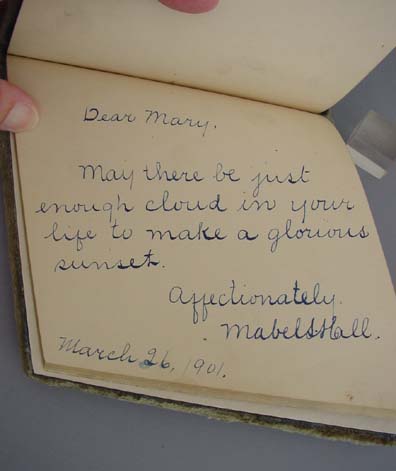 Dear Mary.
May there be just
enough cloud in your
life to make a glorious
sunset.
Affectionately.
Mabel S Hall.
March 26, 1901.